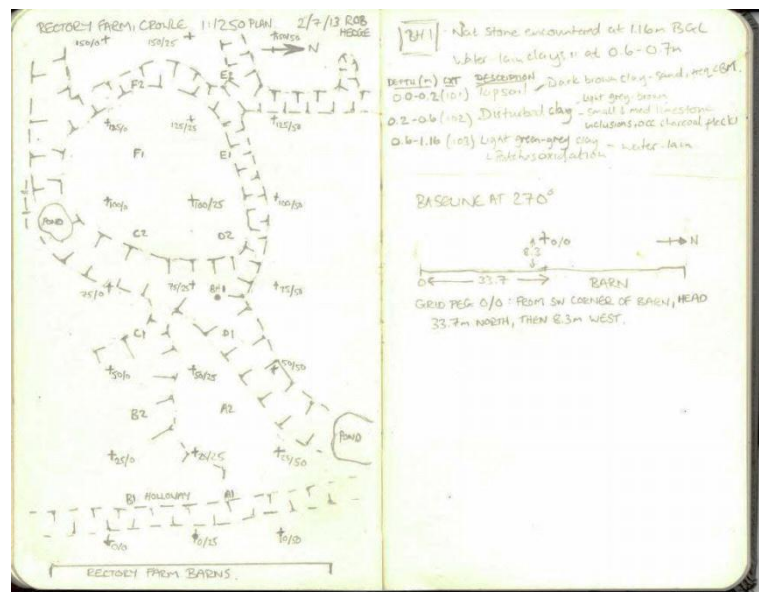 RECTORY FARM, CROWLE 1:1250 PLAN. 2/7/13 ROB HEDGE
150/0
150/25
150/50
N
F2
E2
125/0
125/25
125/50
F1
E1
100/0
100/25
100/50
POND
C2
D2
75/0
75/25
BH1
75/50
C1
D1
50/0
50/25
50/50
B2
A2
25/0
25/25
25/50
POND
B1 HOLLOWAY A1
0/0
0/25
0/50
RECTORY FARM BARNS.
BH1 - Nat stone encountered at 1.16m BGL
Water-lain clays " at 0.6-0.7m
DEPTH (m) CXT DESCRIPTION
0.0-0.2 (101) Topsoil - Dark brown clay-sand, freq CBM.
light grey-brown
0.2-0.6 (102) Disturbed clay - small & med limestone
inclusions, occ charcoal flecks
0.6-1.16 (103) Light green-grey clay - water-lain
oxidation
BASELINE AT 270°
0/0
8.3
N
0 33.7 BARN
GRID PEG 0/0 : FROM SW CORNER OF BARN, HEAD
33.7m NORTH, THEN 8.3m WEST.